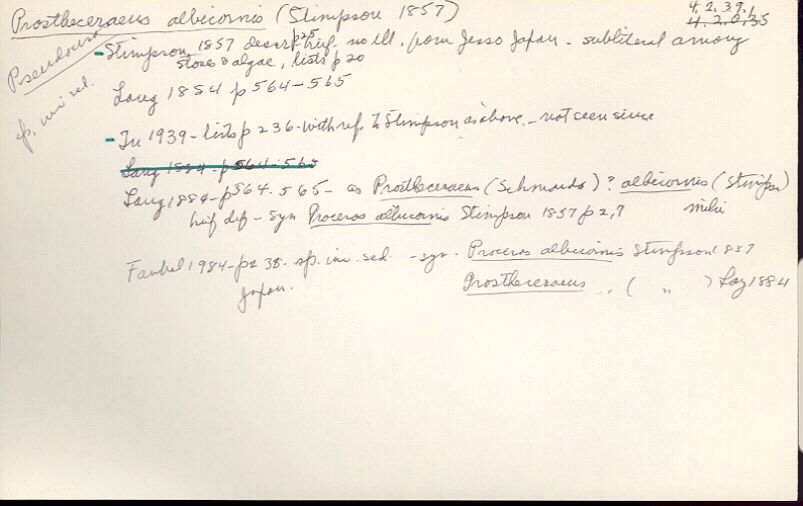 Prostheceraeus albicornis (Stimpson 1857)
4.2.39.1
4.2.0.35
Pseudoceros
sp. inc sed.
- Stimpson 1857 descr p25 brief. no ill. from Jesso Japan - subliteral among
stones & algae, lists p 20
Lang 1854 p 564-565
- In 1939 - lists p 236 - with ref. to Stimpson as above. - not seen since
Lang 1884 - p 564-565
Lang 1884 - p 564-565 - as Prostheceraeus (Schmarda)? albicornis (Stimpson)
brief def - syn Proceros albicornis Stimpson 1857 p 2,7
Faubel 1984 - p 238 - sp. inc. sed. - syn. Proceros albicornis Stimpson 1857
Japan.
Prostheceraeus " ( " ) Lang 1884